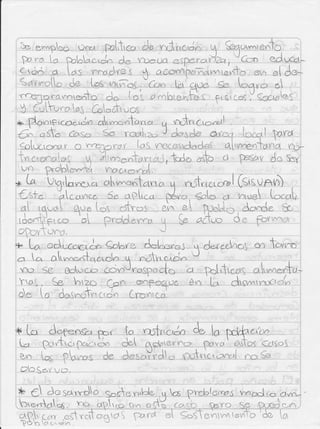 Se emplea una política de nutrición y seguimiento
para la población de nueva esperanza, con educa-
ción a las madres y acompañamiento en el de-
sarrollo de los niños. Con la que se logra el
mejoramiento de los ambientes Físicos, Sociales
y Culturales Colectivos
* Planificación alimentaria y nutricional.
En este caso se realiza desde area local para
solucionar o mejorar las necesidades alimentaria nu-
tricionales y alimentarias, todo esto a pesar de ser
un problema nacional.
* La Vigilancia alimentaria y nutricional (SISVAN)
Este alcance se aplica pero solo a nivel local,
al igual que los otros en el pueblo donde se
identifica el problema y se actua de forma
oportuna.
* La educación sobre deberes y derechos en torno
a la alimentación y nutrición
no se educa con respecto a políticas alimenta-
rias. Se hizo con enfoque en la disminución
de la desnutrición Cronica.
* La defensa por la nutrición de la población
la participación del gobierno para estos casos
en los planes de desarrollo nutricional no se
observo.
* El desarrollo sostenible y los problemas medio am-
bientales, no aplica en este caso pero se pueden
aplicar estrategias para el sostenimiento de la
población.